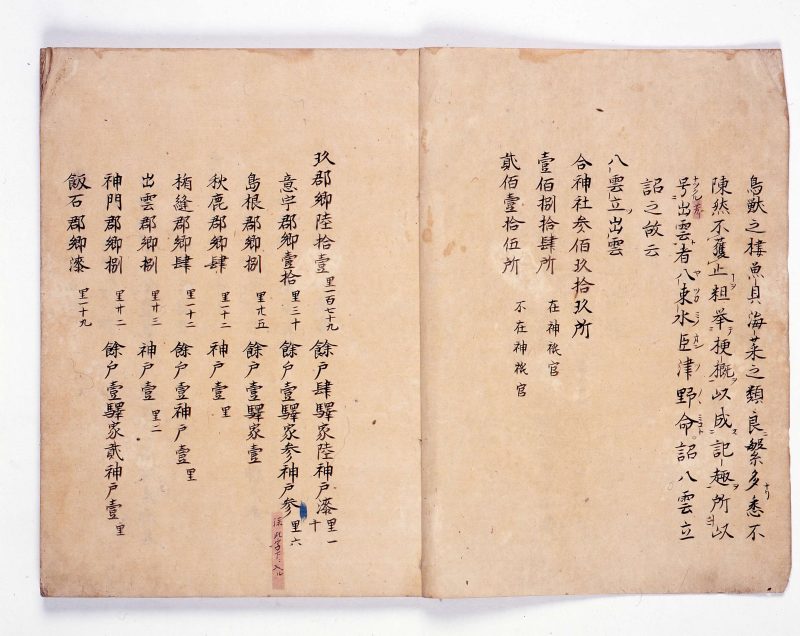 鳥獣之棲魚貝海菜之類良繁多悉不
陳然不獲止粗挙梗概以成記趣所以
号出雲者八束水臣津野命詔八雲立
詔之故云
八雲立出雲
合神社参佰玖拾玖所
壹佰捌拾肆所 在神祇官
貳佰壹拾伍所 不在神祇官
玖郡郷陸拾壹 里一百七十九 餘戸肆驛家陸神戸漆 里一十
意宇郡郷壹拾 里三十 餘戸壹驛家参神戸参 里六
島根郡郷捌 里廿五 餘戸壹驛家壹
秋鹿郡郷肆 里一十二 神戸壹 里
楯縫郡郷肆 里一十二 餘戸壹神戸壹 里
出雲郡郷捌 里廿三 神戸壹 里二
神門郡郷捌 里廿二 餘戸壹驛家貳神戸壹 里
飯石郡郷漆 里一十九